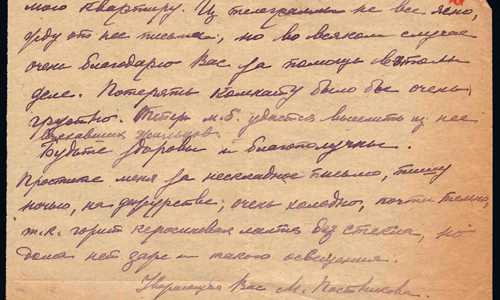 мою квартиру. Из телеграммы не все ясно,
жду от нее письма, но во всяком случае
очень благодарю Вас за помощь в этом
деле. Потерять комнату было бы очень
грустно. Теперь м.б. удастся выселить из нее
жильцов.
Будьте здоровы и благополучны.
Простите меня за нескладное письмо, пишу
ночью, на дежурстве, очень холодно, почти темно,
т.к. горит керосиновая лампа без стекла, но
дома нет даже и такого освещения.
Уважающая Вас М. Постникова.